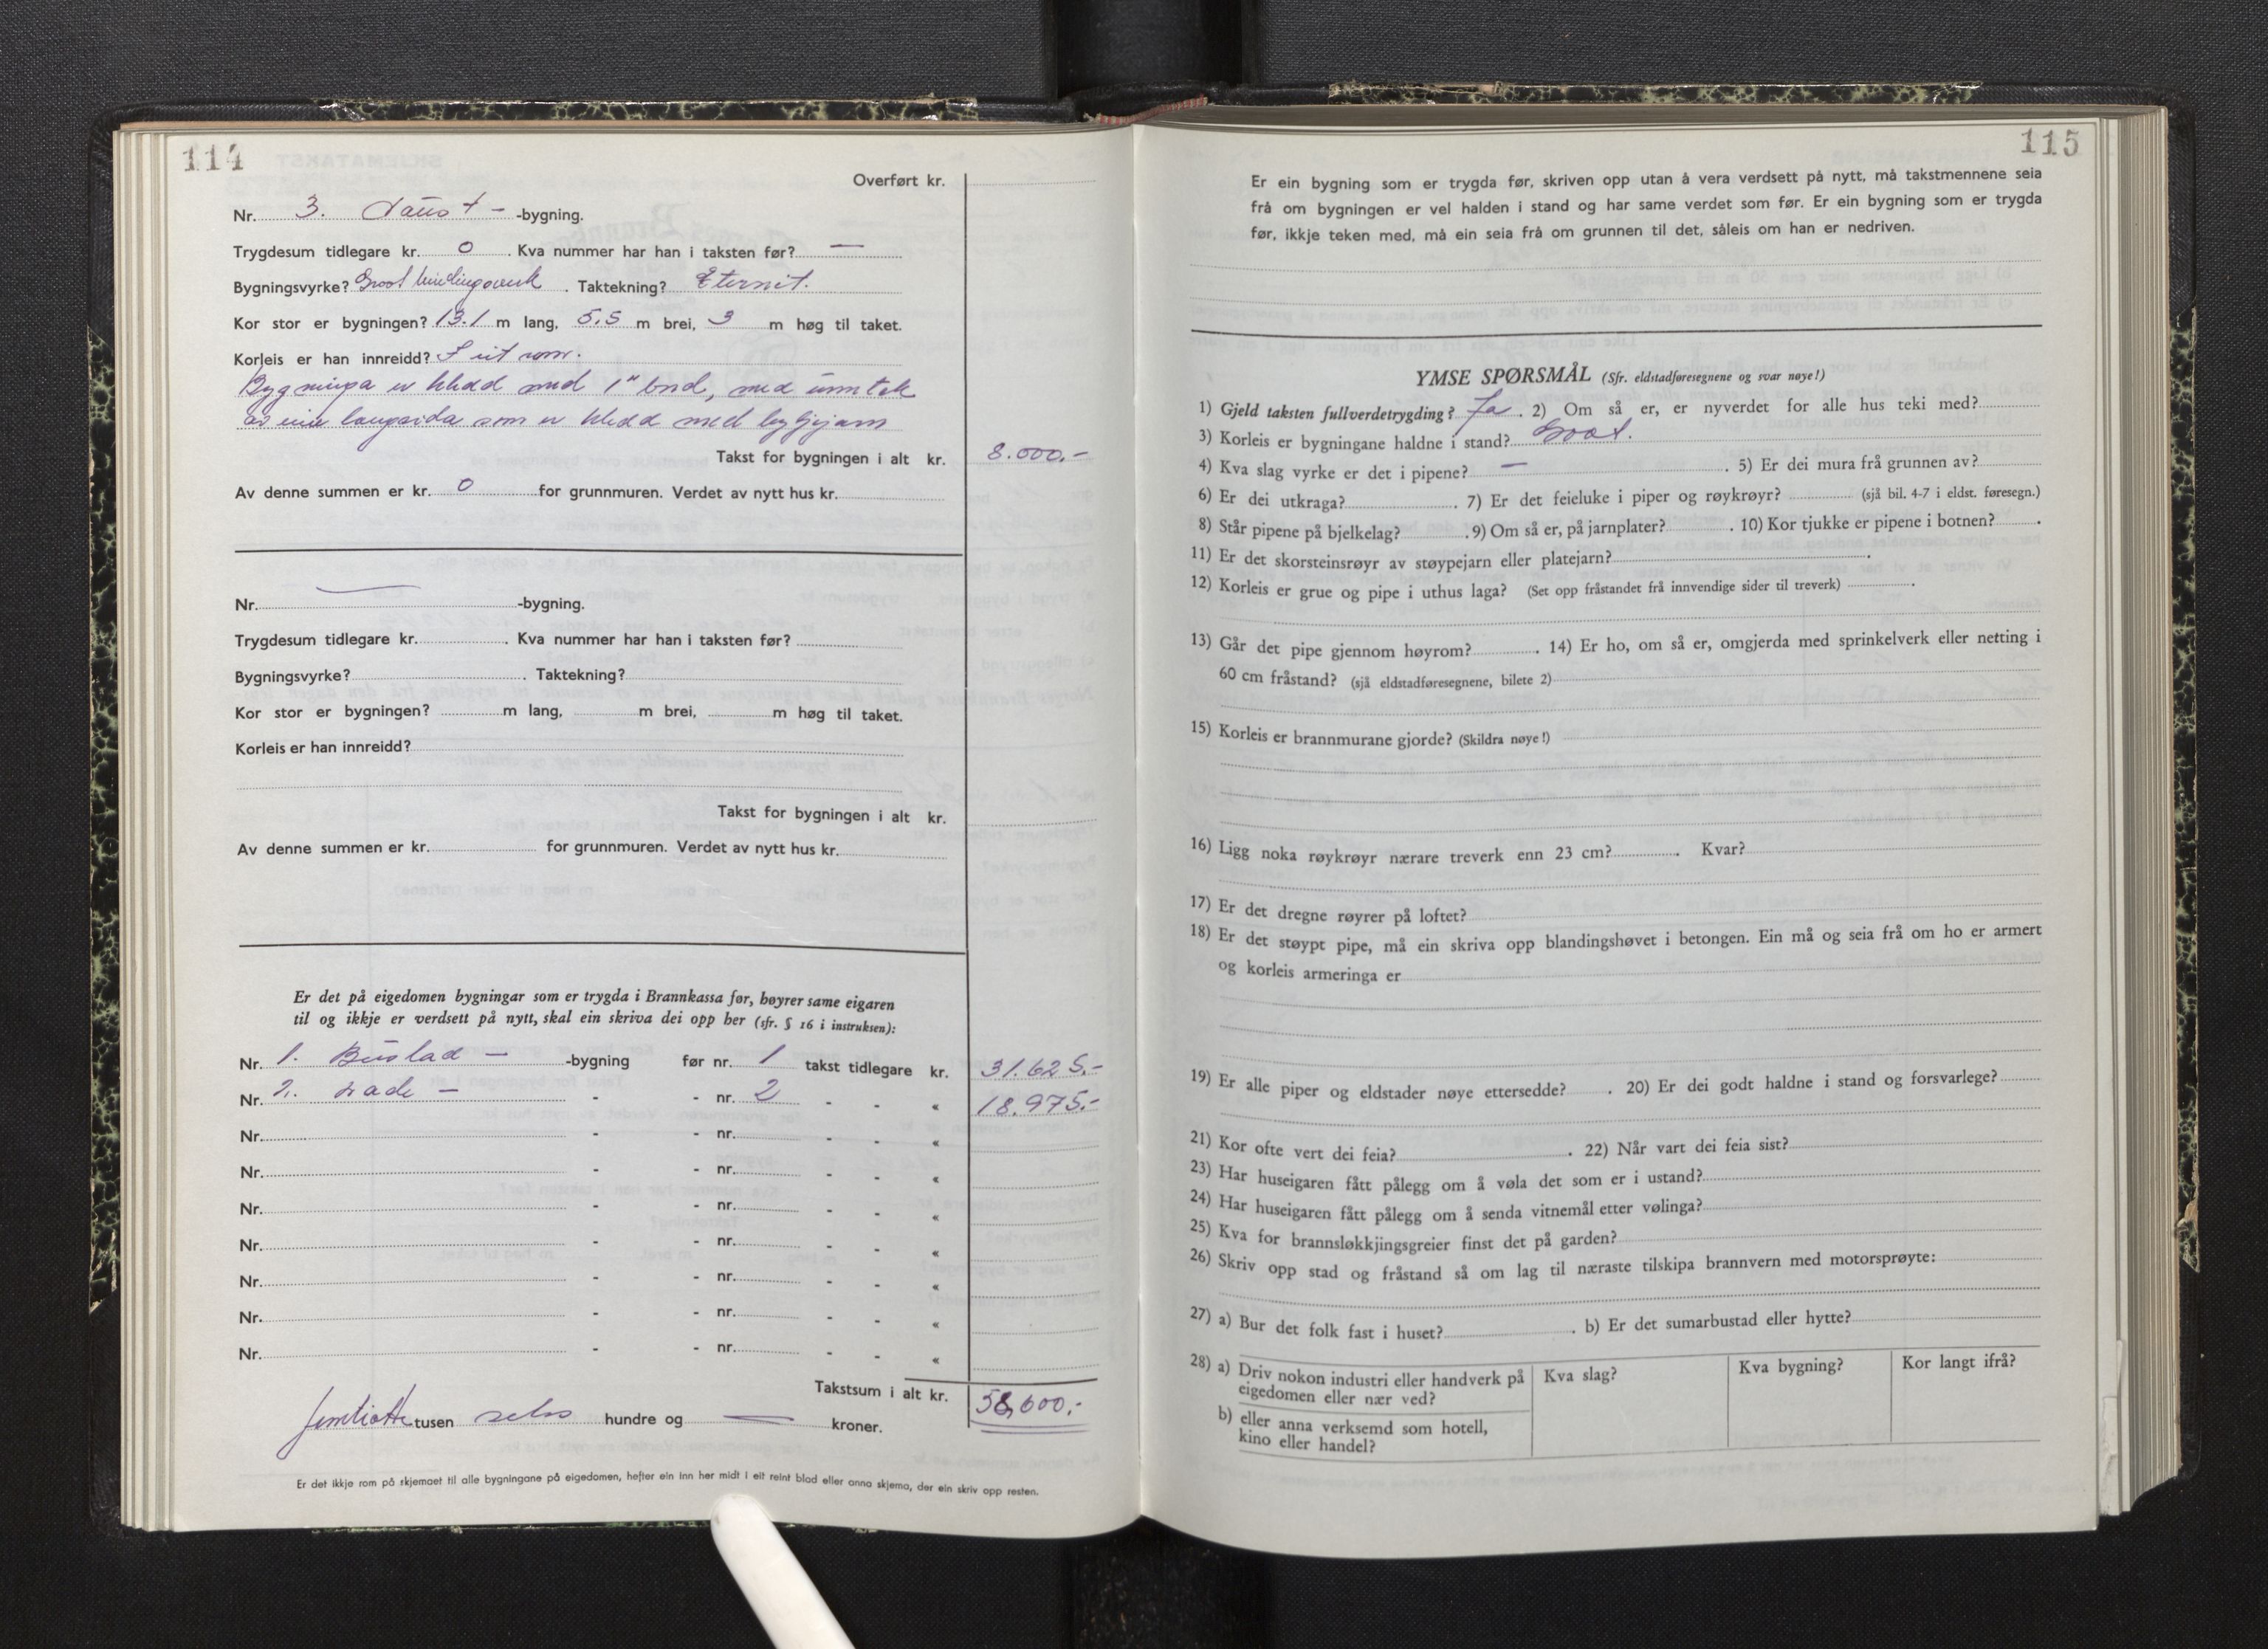 114
Overført kr.
Nr. 3. Naust - -bygning.
Trygdesum tidlegare kr. 0 . Kva nummer har han i taksten før? —
Bygningsvyrke? Godt bindingsverk . Taktekning? Eternit.
Kor stor er bygningen? 13.1 m lang, 5,5 m brei, 3 m høg til taket.
Korleis er han innreidd? I eit rom.
Bygninga er kledd med 1" bord, med unntak
av eine langsida som er kledd med bylgjejarn
Takst for bygningen i alt kr. 8.000.-
Av denne summen er kr. 0 for grunnmuren. Verdet av nytt hus kr.
Nr. — -bygning.
Trygdesum tidlegare kr. . Kva nummer har han i taksten før?
Bygningsvyrke? . Taktekning?
Kor stor er bygningen? m lang, m brei, m høg til taket.
Korleis er han innreidd?
Takst for bygningen i alt kr.
Av denne summen er kr. for grunnmuren. Verdet av nytt hus kr.
Er det på eigedomen bygningar som er trygda i Brannkassa før, høyrer same eigaren
til og ikkje er verdsett på nytt, skal ein skriva dei opp her (sfr. § 16 i instruksen):
Nr. 1. Bustad - -bygning før nr. 1 takst tidlegare kr. 31.625.-
Nr. 2. Løde - - - nr. 2 - - « 18.975.-
Nr. - - nr. - - «
Nr. - - nr. - - «
Nr. - - nr. - - «
Nr. - - nr. - - «
Nr. - - nr. - - «
Nr. - - nr. - - «
Nr. - - nr. - - «
Takstsum i alt kr. 58,600.-
femtiåtte tusen seks hundre og — kroner.
Er det ikkje rom på skjemaet til alle bygningane på eigedomen, hefter ein inn her midt i eit reint blad eller anna skjema, der ein skriv opp resten.
115
Er ein bygning som er trygda før, skriven opp utan å vera verdsett på nytt, må takstmennene seia
frå om bygningen er vel halden i stand og har same verdet som før. Er ein bygning som er trygda
før, ikkje teken med, må ein seia frå om grunnen til det, såleis om han er nedriven.
YMSE SPØRSMÅL (Sfr. eldstadføresegnene og svar nøye!)
1) Gjeld taksten fullverdetrygding? Ja . 2) Om så er, er nyverdet for alle hus teki med?
3) Korleis er bygningane haldne i stand? Godt.
4) Kva slag vyrke er det i pipene? — . 5) Er dei mura frå grunnen av?
6) Er dei utkraga? . 7) Er det feieluke i piper og røykrøyr? (sjå bil. 4-7 i eldst. føresegn.)
8) Står pipene på bjelkelag? . 9) Om så er, på jarnplater? . 10) Kor tjukke er pipene i botnen? .
11) Er det skorsteinsrøyr av støypejarn eller platejarn? .
12) Korleis er grue og pipe i uthus laga? (Set opp fråstandet frå innvendige sider til treverk) .
13) Går det pipe gjennom høyrom? . 14) Er ho, om så er, omgjerda med sprinkelverk eller netting i
60 cm fråstand? (sjå eldstadføresegnene, bilete 2)
15) Korleis er brannmurane gjorde? (Skildra nøye!)
16) Ligg noka røykrøyr nærare treverk enn 23 cm? . Kvar?
17) Er det dregne røyrer på loftet?
18) Er det støypt pipe, må ein skriva opp blandingshøvet i betongen. Ein må og seia frå om ho er armert
og korleis armeringa er
19) Er alle piper og eldstader nøye ettersedde? . 20) Er dei godt haldne i stand og forsvarlege?
21) Kor ofte vert dei feia? . 22) Når vart dei feia sist?
23) Har huseigaren fått pålegg om å vøla det som er i ustand?
24) Har huseigaren fått pålegg om å senda vitnemål etter vølinga?
25) Kva for brannsløkkjingsgreier finst det på garden?
26) Skriv opp stad og fråstand så om lag til næraste tilskipa brannvern med motorsprøyte:
27) a) Bur det folk fast i huset? . b) Er det sumarbustad eller hytte?
28) a) Driv nokon industri eller handverk på Kva slag? Kva bygning? Kor langt ifrå?
eigedomen eller nær ved?
b) eller anna verksemd som hotell,
kino eller handel?